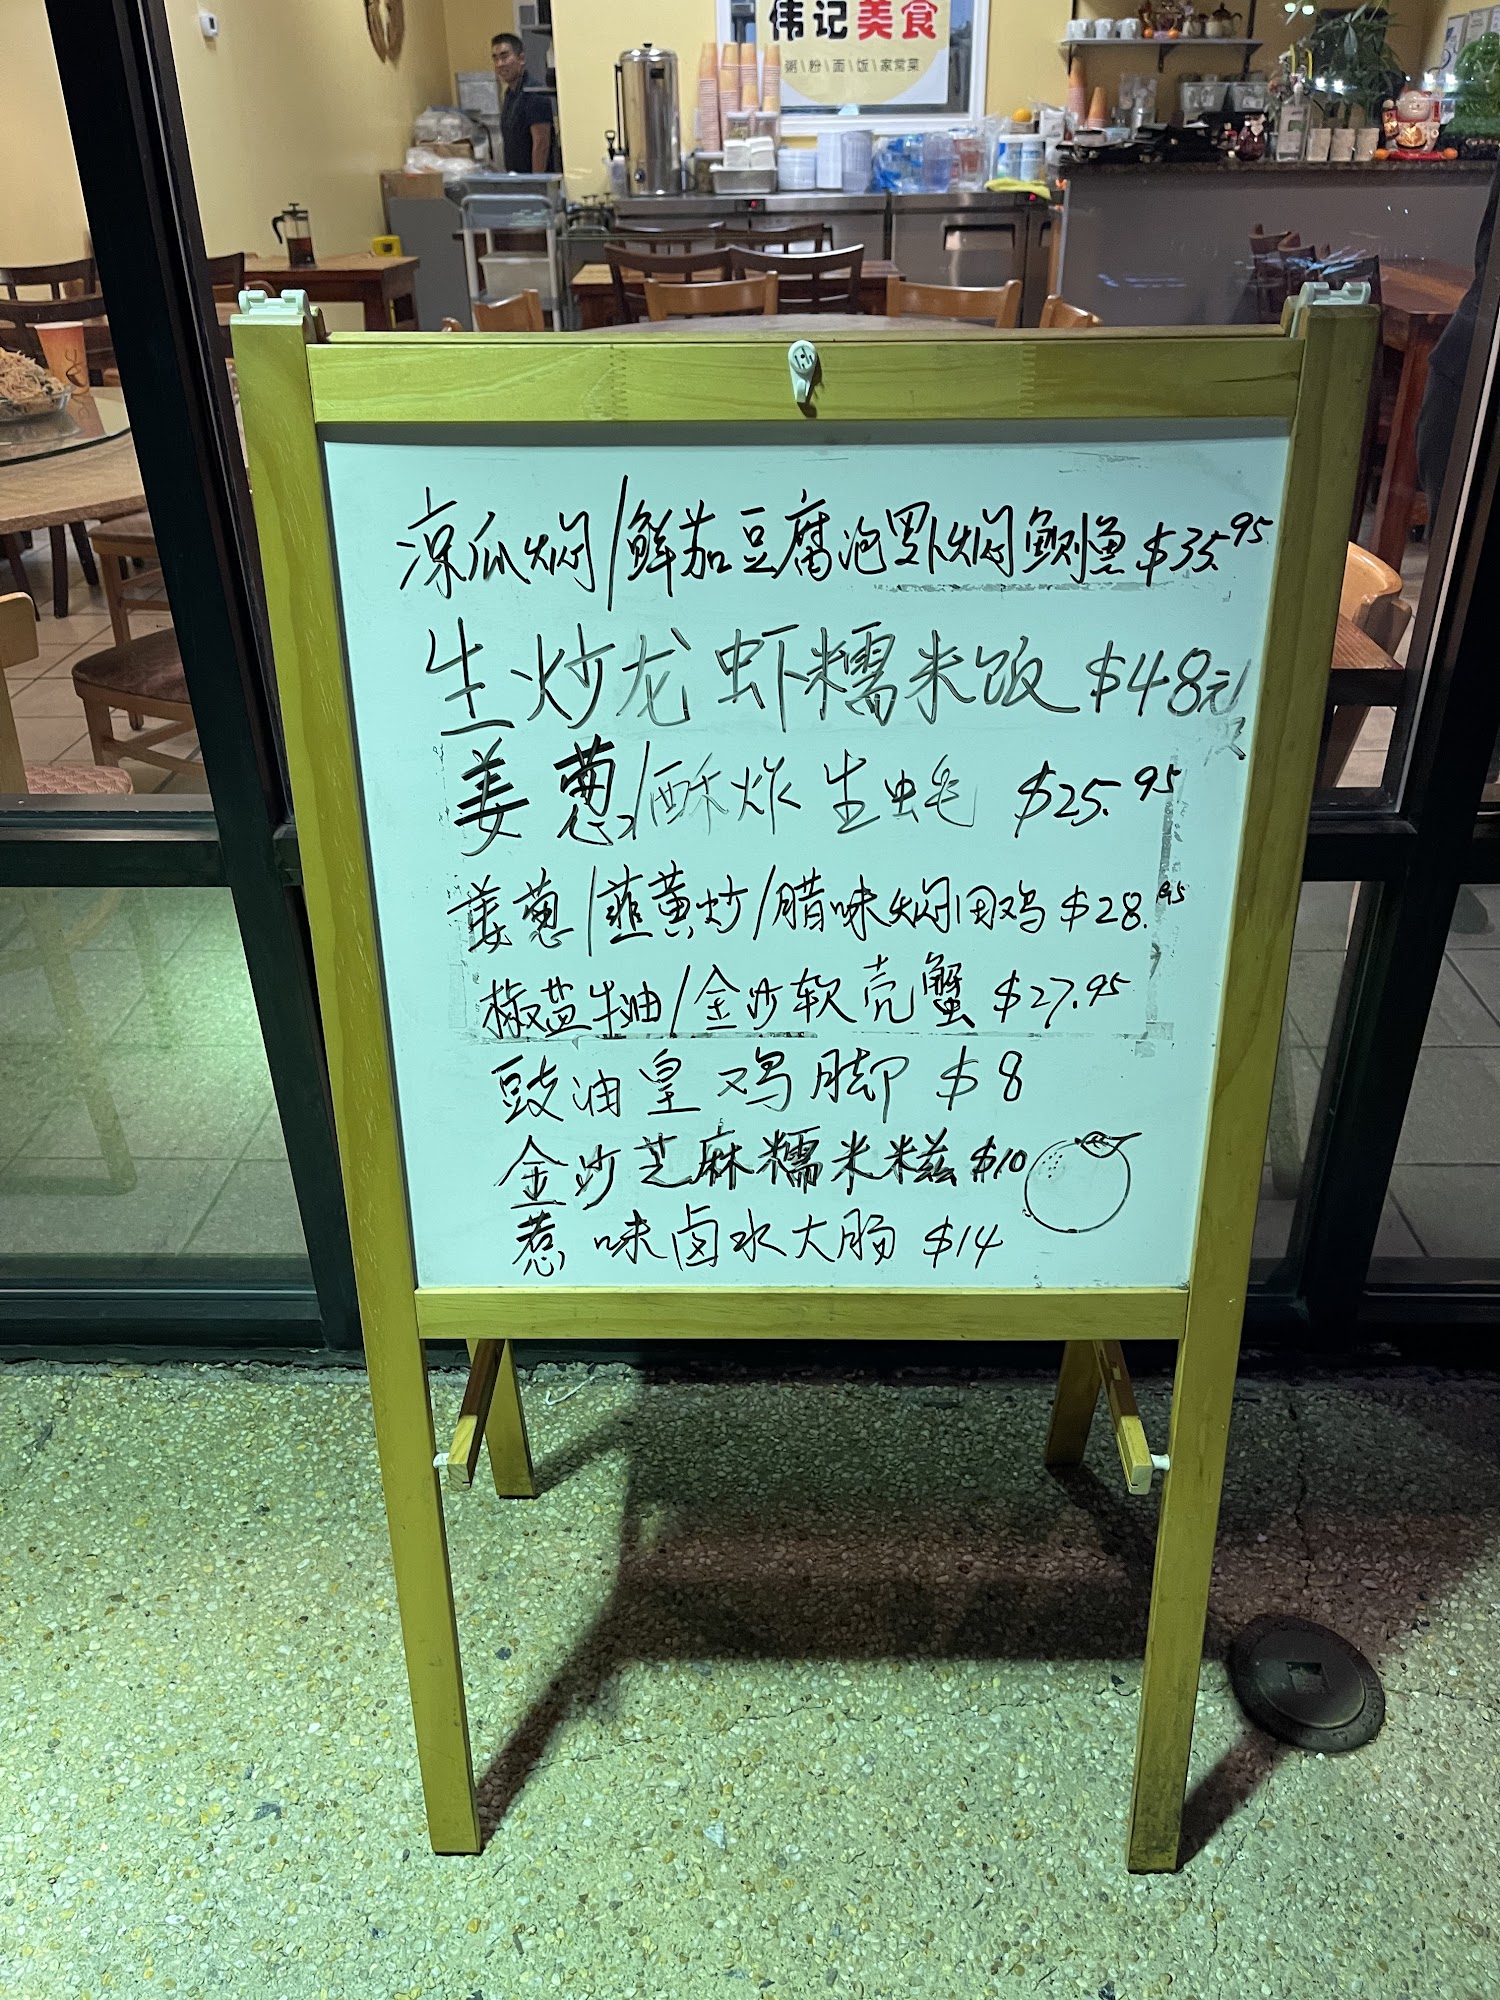 伟记美食
粥\粉\面\饭\家常菜
凉瓜焖/鲜茄豆腐泡焖鱼 $35.95
生炒龙虾糯米饭 $48元/只
姜葱/酥炸生虫毛 $25.95
姜葱/韭黄炒/腊味焖田鸡 $28.95
椒盐牛油/金沙软壳蟹 $27.95
豉油皇鸡脚 $8
金沙芝麻糯米糍 $10
惹味卤水大肠 $14